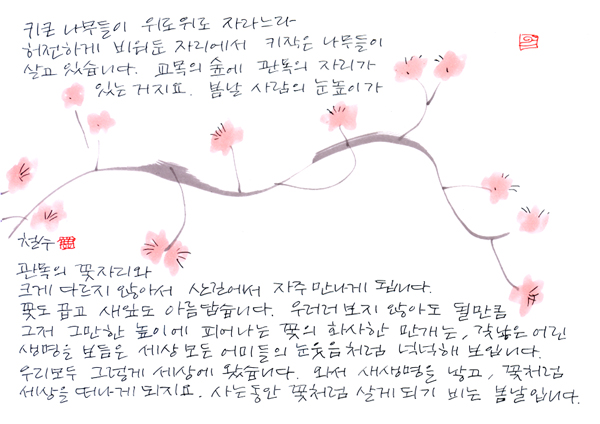 키큰 나무들이 위로위로 자라느라
허전하게 비워둔 자리에서 키작은 나무들이
살고 있습니다. 교목의 숲에 관목의 자리가
있는 거지요. 봄날 사람의 눈높이가
철수
관목의 꽃자리와
크게 다르지 않아서 산길에서 자주 만나게 됩니다.
꽃도 곱고 새잎도 아름답습니다. 우러러 보지 않아도 될만큼
그저 그만한 높이에 피어나는 꽃의 화사한 만개는, 갓낳은 어린
생명을 보듬은 세상 모든 어미들의 눈웃음처럼 넉넉해 보입니다.
우리모두 그렇게 세상에 왔습니다. 와서 새생명을 낳고, 꽃처럼
세상을 떠나게 되지요. 사는동안 꽃처럼 살게되기 비는 봄날입니다.